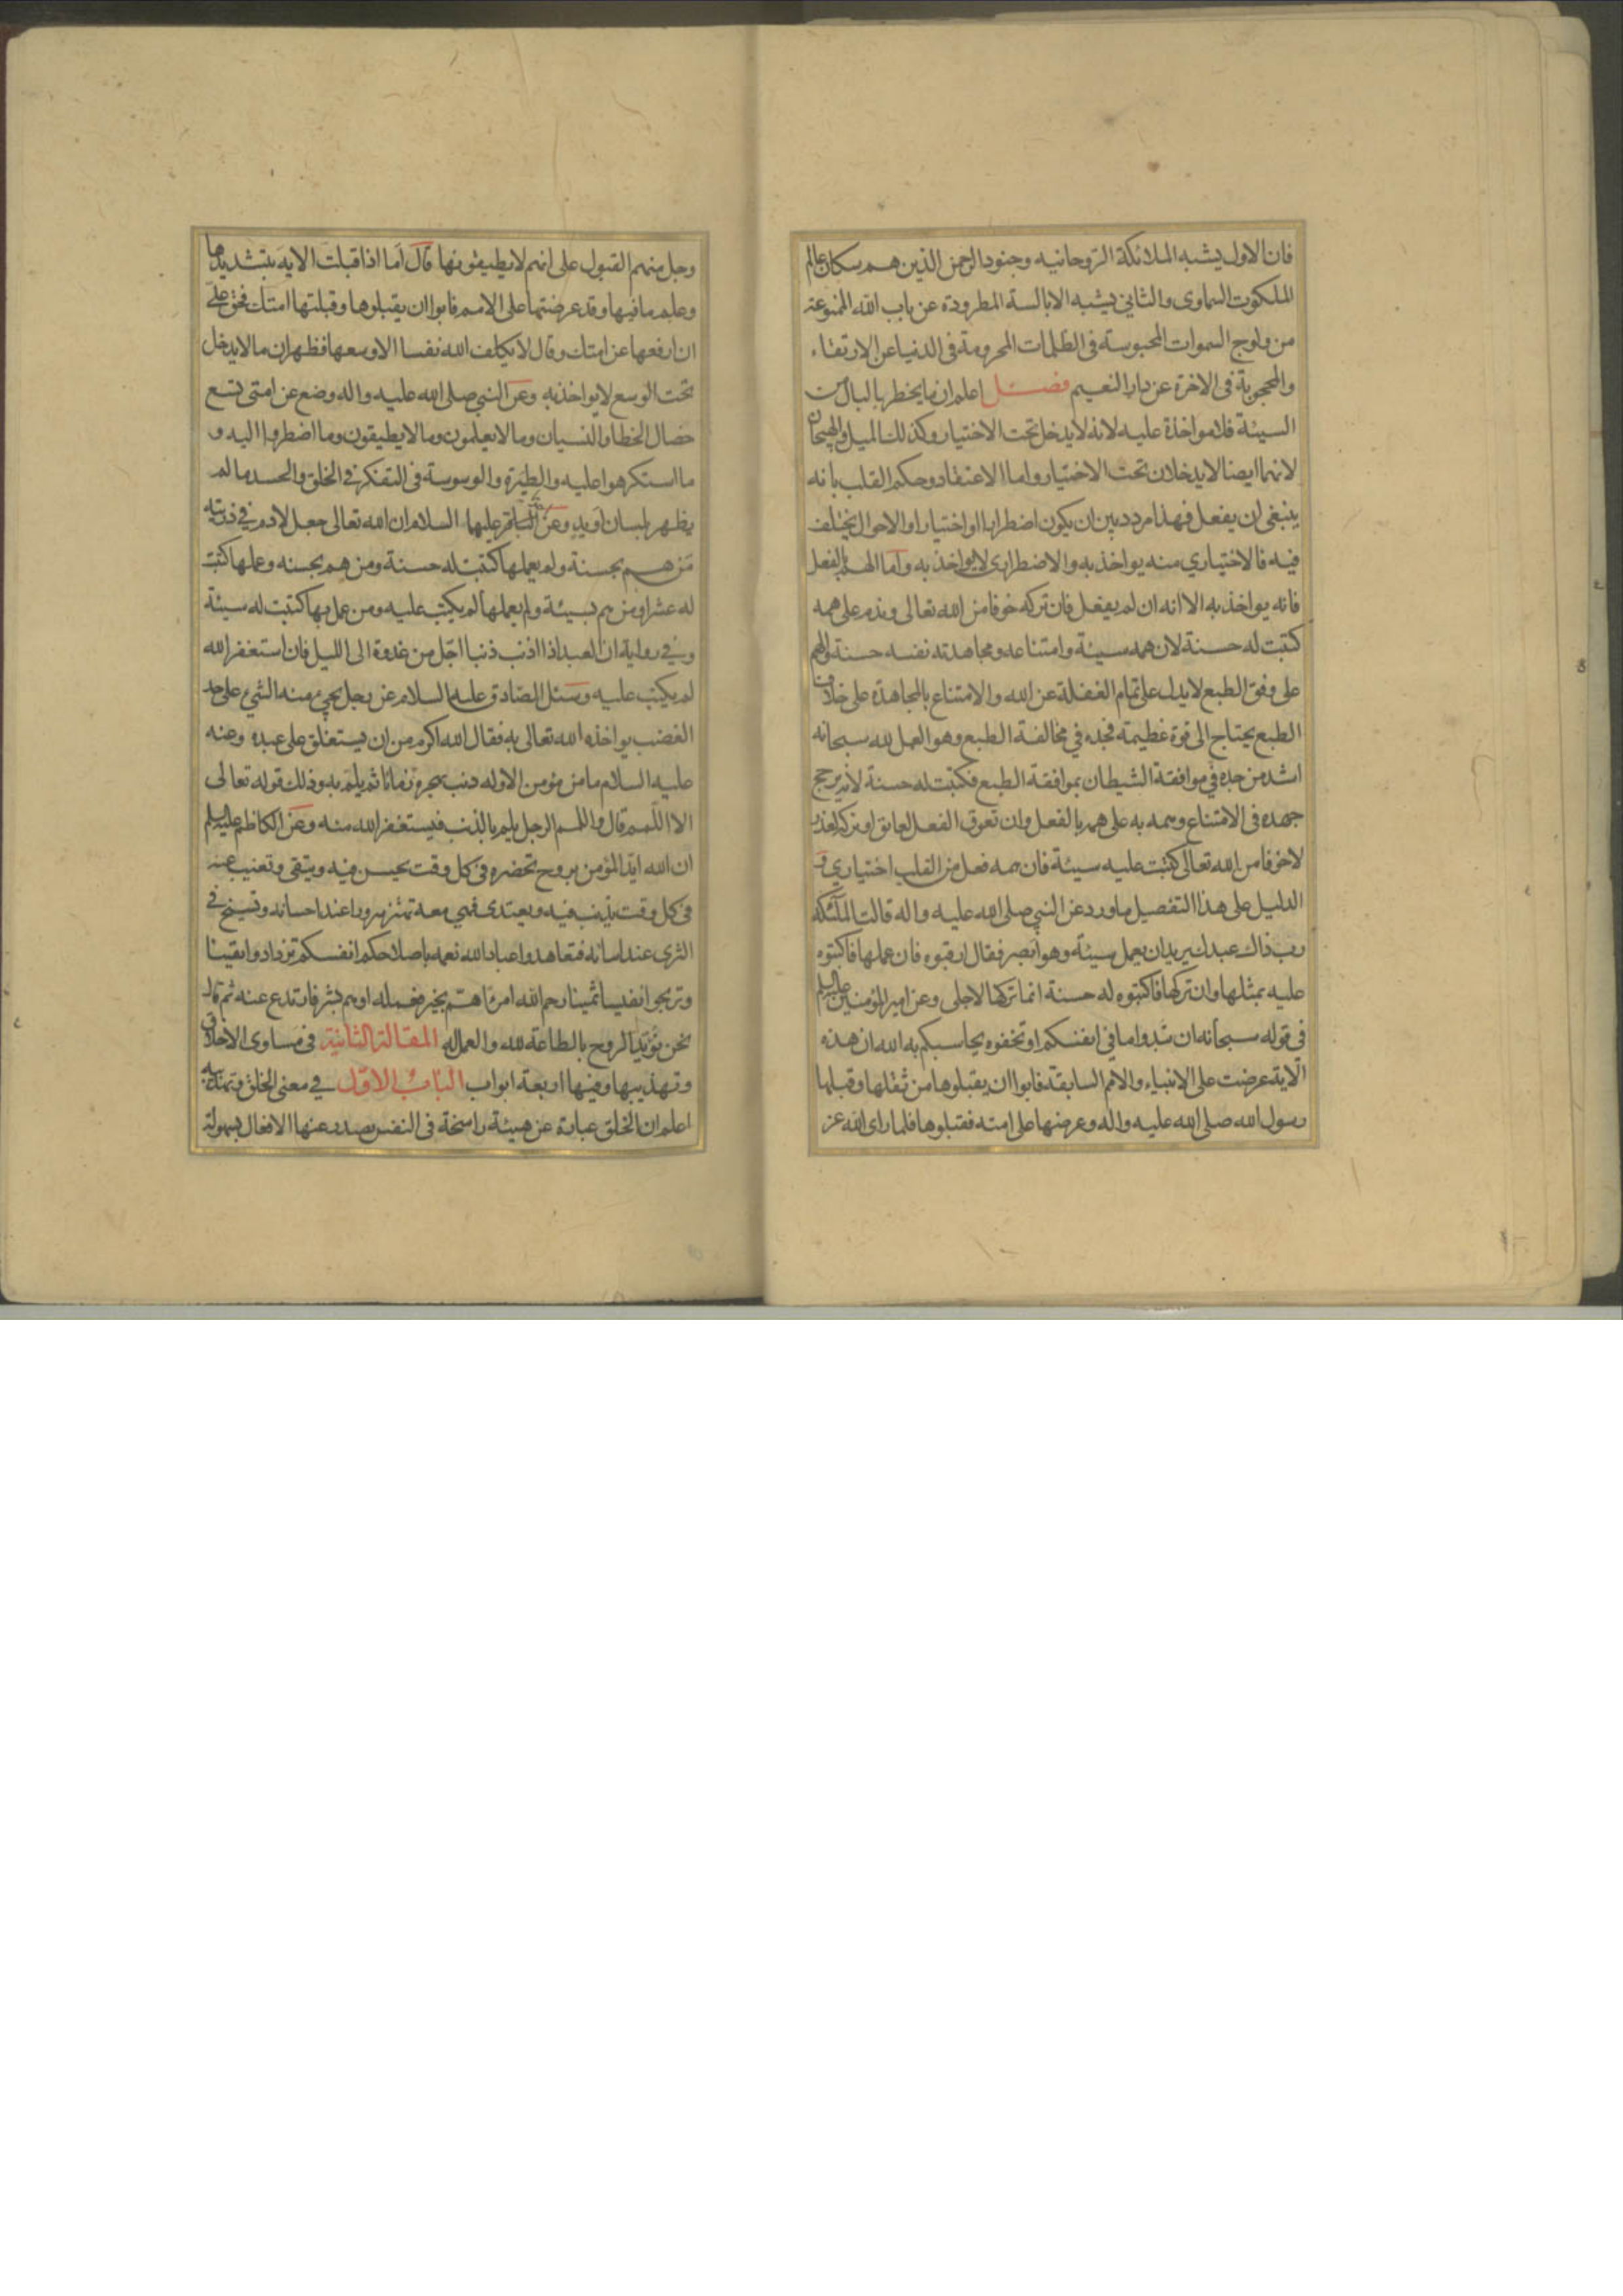 فان الاول يشبه الملائكة الروحانيه وجنود الرحمن الذين هم سكان عالم
الملكوت السماوى والثاني يشبه الابالسة المطرودة عن باب الله الممنوعة
من ولوج السموات المحبوسة فى الظلمات المحرومة فى الدنيا عن الارتقاء
والمحجوبة فى الاخرة عن دار النعيم فصل اعلم ان ما يخطر بالبال من
السيئة فلا مواخذة عليه لانه لا يدخل تحت الاختيار وكذلك الميل والهيجان
لانهما ايضا لا يدخلان تحت الاختيار واما الاعتقاد وحكم القلب بانه
ينبغى ان يفعل فهذا مردد بين ان يكون اضطرارا او اختيارا والاحوال يختلف
فيه فالاختياري منه يواخذ به والاضطرارى لا يواخذ به واما الهم بالفعل
فانه يواخذ به الا انه ان لم يفعل فان تركه خوفا من الله تعالى وندم على همه
كتبت له حسنة لان همه سيئة وامتناعه ومجاهدته نفسه حسنة والهم
على وفق الطبع لا يدل على تمام الغفلة عن الله والامتناع بالمجاهدة على خلاف
الطبع يحتاج الى قوة عظيمة فجده في مخالفة الطبع وهو العمل لله سبحانه
اشد من جده في موافقة الشيطان بموافقة الطبع فكتبت له حسنة لانه يرجح
جهده فى الامتناع وهمه به على همه بالفعل وان تعوق الفعل لعايق او تركه لعذر
لا خوفا من الله تعالى كتبت عليه سيئة فان همه فعل من القلب اختياري و
الدليل على هذا التفصيل ما ورد عن النبي صلى الله عليه واله قالت الملئكة
رب ذاك عبدك يريد ان يعمل سيئة وهو ابصر فقال ارقبوه فان عملها فاكتبوه
عليه بمثلها وان تركها فاكتبوه له حسنة انما تركها لاجلى وعن امير المؤمنين عليه السلم
فى قوله سبحانه ان تبدوا ما في انفسكم او تخفوه يحاسبكم به الله ان هذه
الآية عرضت على الانبياء والامم السابقة فابوا ان يقبلوها من ثقلها وقبلها
رسول الله صلى الله عليه واله وعرضها على امته فقبلوها فلما راى الله عز
وجل منهم القبول على انهم لا يطيقونها قال اما اذا قبلت الايه بتشديدها
وعظم ما فيها وقد عرضتها على الامم فابوا ان يقبلوها وقبلتها امتك فحق علي
ان ارفعها عن امتك وقال لا يكلف الله نفسا الا وسعها فظهر ان ما لا يدخل
تحت الوسع لا يواخذ به وعن النبي صلى الله عليه واله وضع عن امتى تسع
خصال الخطا والنسيان وما لا يعلمون وما لا يطيقون وما اضطروا اليه و
ما استكرهوا عليه والطيرة والوسوسة فى التفكر في الخلق والحسد ما لم
يظهر بلسان او يد وعن عليهما السلام ان الله تعالى جعل لادم في ذريته
من هم بحسنة ولم يعملها كتبت له حسنة ومن هم بحسنه وعملها كتبت
له عشرا ومن هم بسيئة ولم يعملها لم يكتب عليه ومن عمل بها كتبت له سيئة
وفي رواية ان العبد اذا اذنب ذنبا اجل من غدوة الى الليل فان استغفر الله
لم يكتب عليه وسئل الصادق عليه السلام عن رجل يجئ منه الشئ على حد
الغضب يواخذه الله تعالى به فقال الله اكرم من ان يستغلق على عبده وعنه
عليه السلام ما من مؤمن الا وله ذنب يهجره زمانا ثم يلم به وذلك قوله تعالى
الا اللمم قال واللمم الرجل يلم بالذنب فيستغفر الله منه وعن الكاظم عليه السلم
ان الله ايد المؤمن بروح تحضره فى كل وقت يحسن فيه ويتقى وتغيب عنه
فى كل وقت يذنب فيه ويعتدى فهي معه تهتز سرورا عند احسانه وتسيخ في
الثرى عند اسائه فتعاهدوا عباد الله نعمه باصلاحكم انفسكم تزدادوا يقينا
وتربحوا نفيسا ثمينا رحم الله امرئا هم بخير فعمله او هم بشر فارتدع عنه ثم قال
نحن نؤيد الروح بالطاعة لله والعمل له المقالة الثانية فى مساوى الاخلاق
وتهذيبها وفيها اربعة ابواب الباب الاول في معنى الخلق وتهذيبه
اعلم ان الخلق عبارة عن هيئة راسخة فى النفس يصدر عنها الافعال بسهولة